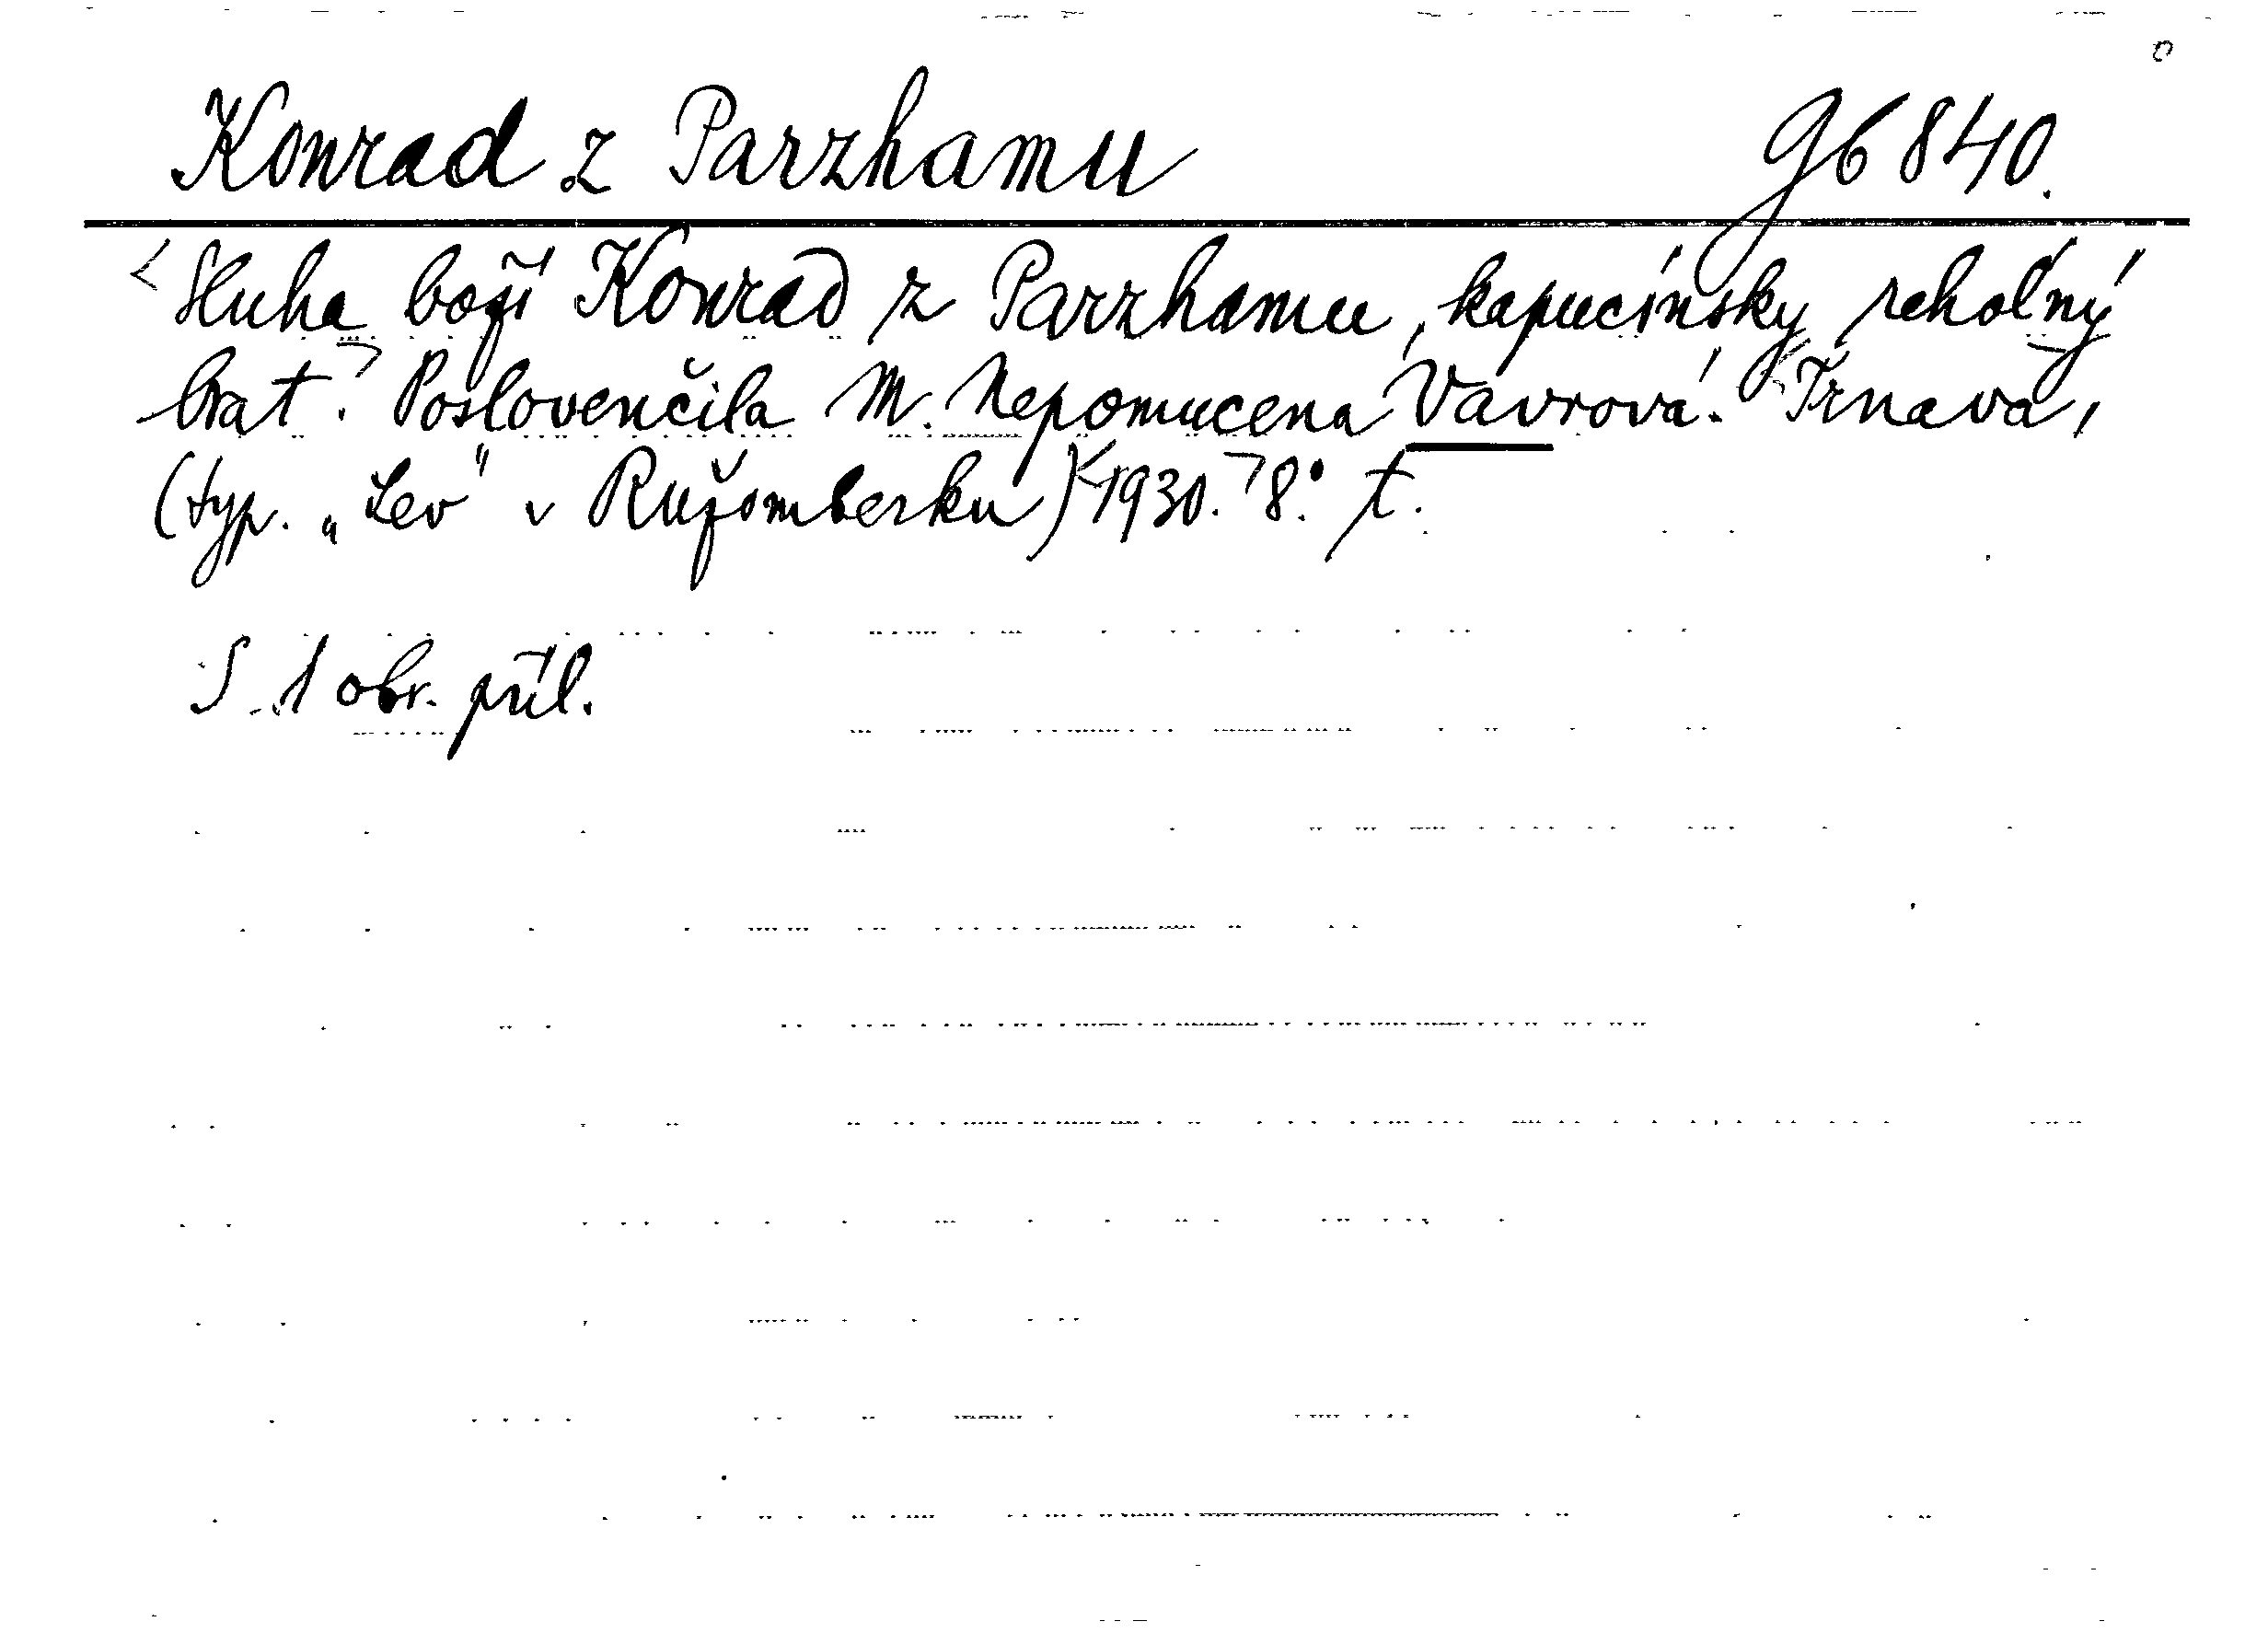 Konrad z Parzhamu 9b 840.
Sluha boží Konrad z Parzhamu, kapucínsky reholný
brat. Poslovenčila M. Nepomucena Vavrová. Trnava,
(typ. „Lev" v Ružomberku) 1930. 8° t.
S 1 obr. příl.